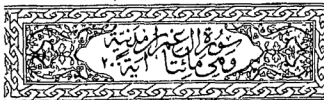 سورة آل عمران مدنية
وهي مائتا آية